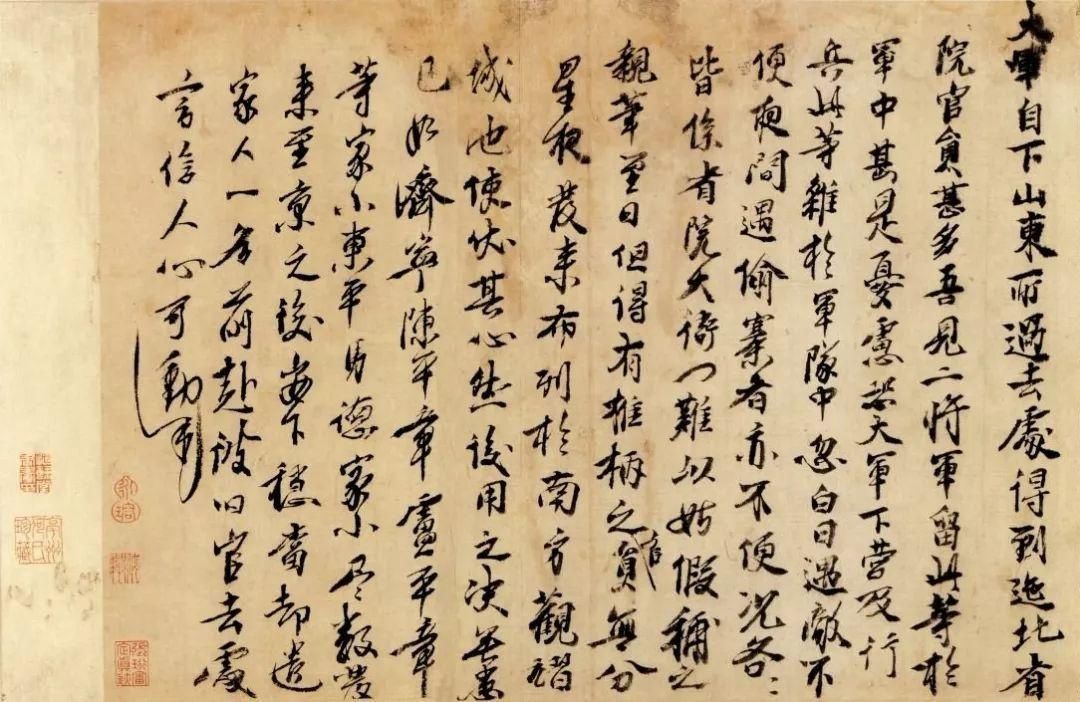 大軍自下山東所過去處得到迤北省
院官員甚多吾見二將軍留此等於
軍中甚是憂慮恐大軍下營及行
兵此等雜於軍隊中忽白日遇敵不
便夜間遇偷寨者亦不便況各〻
皆係省院大衙門難以姑假補之
親筆至日但得有椎柄之官員無分
星夜發來布列於南方觀翫
城池使伏其心然後用之決無患
已如濟寧陳平章盧平章
等家小東平馬德家小盡數發
來至京之後安下穩當却遣
家人一名前赴彼旧官去處
言信人心可動